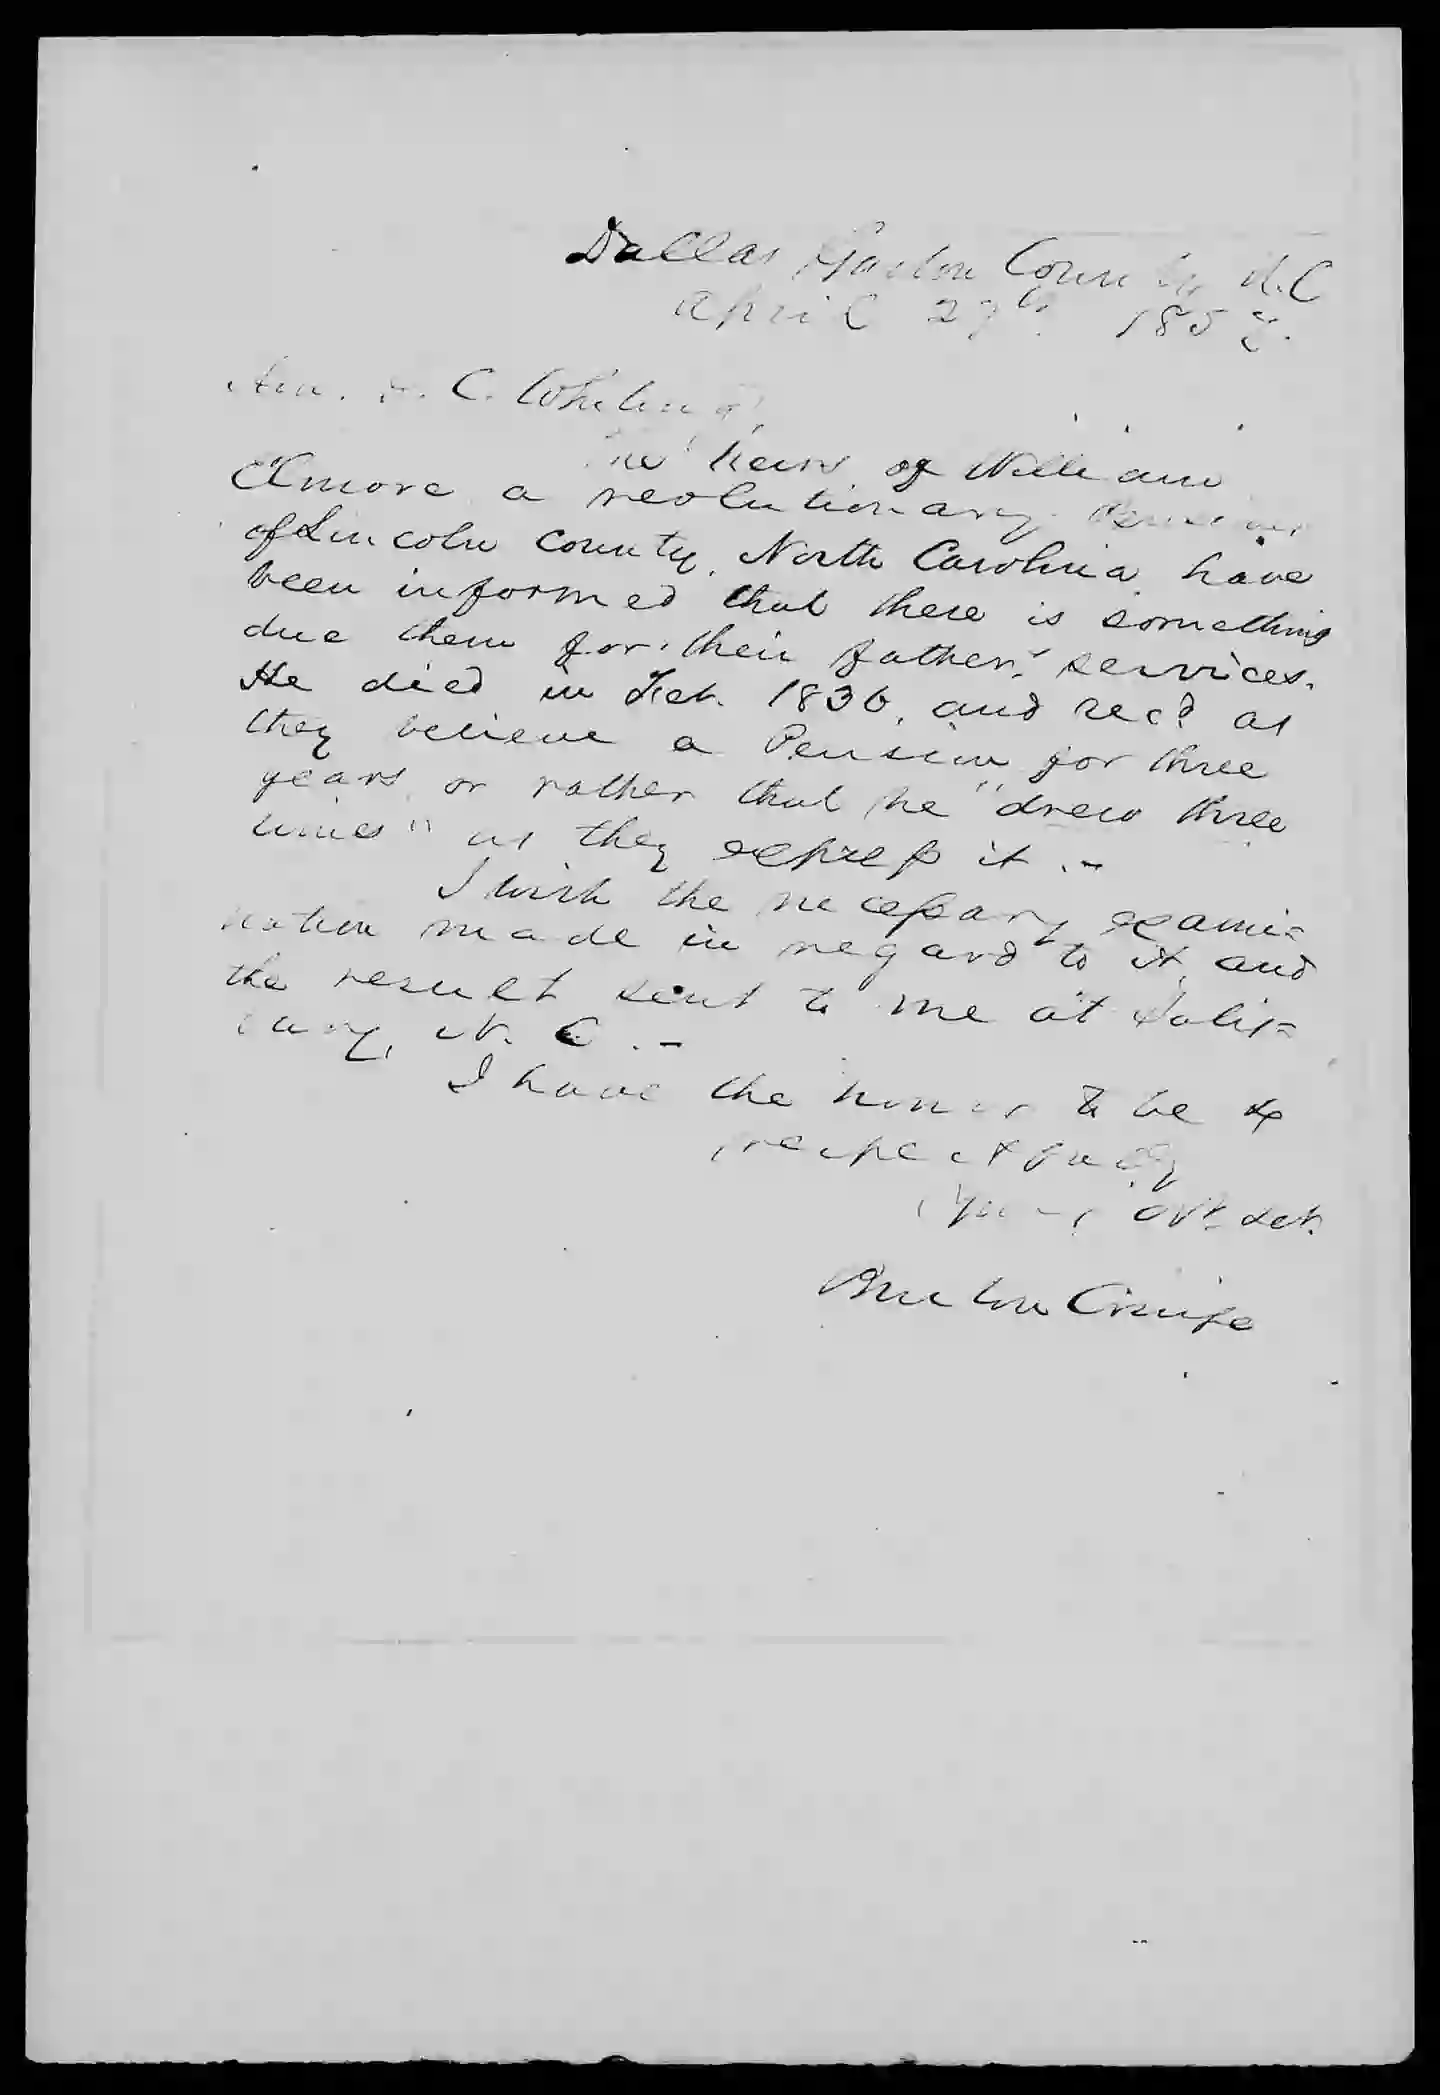 Dallas Gaston County N.C
April 27th 1857.
Hon. C. Whiting,
The heirs of William
Elmore a revolutionary Pensioner
of Lincoln County, North Carolina, have
been informed that there is something
due them for their father's services.
He died in Feb. 1836, and recd as
they believe a Pension for three
years, or rather that he "drew three
times" as they express it. -
I wish the necessary exami=
nation made in regard to it, and
the result sent to me at Salis=
bury, N. C. -
I have the honor to be &
respectfully
Your obt. Set.
Burton Craige